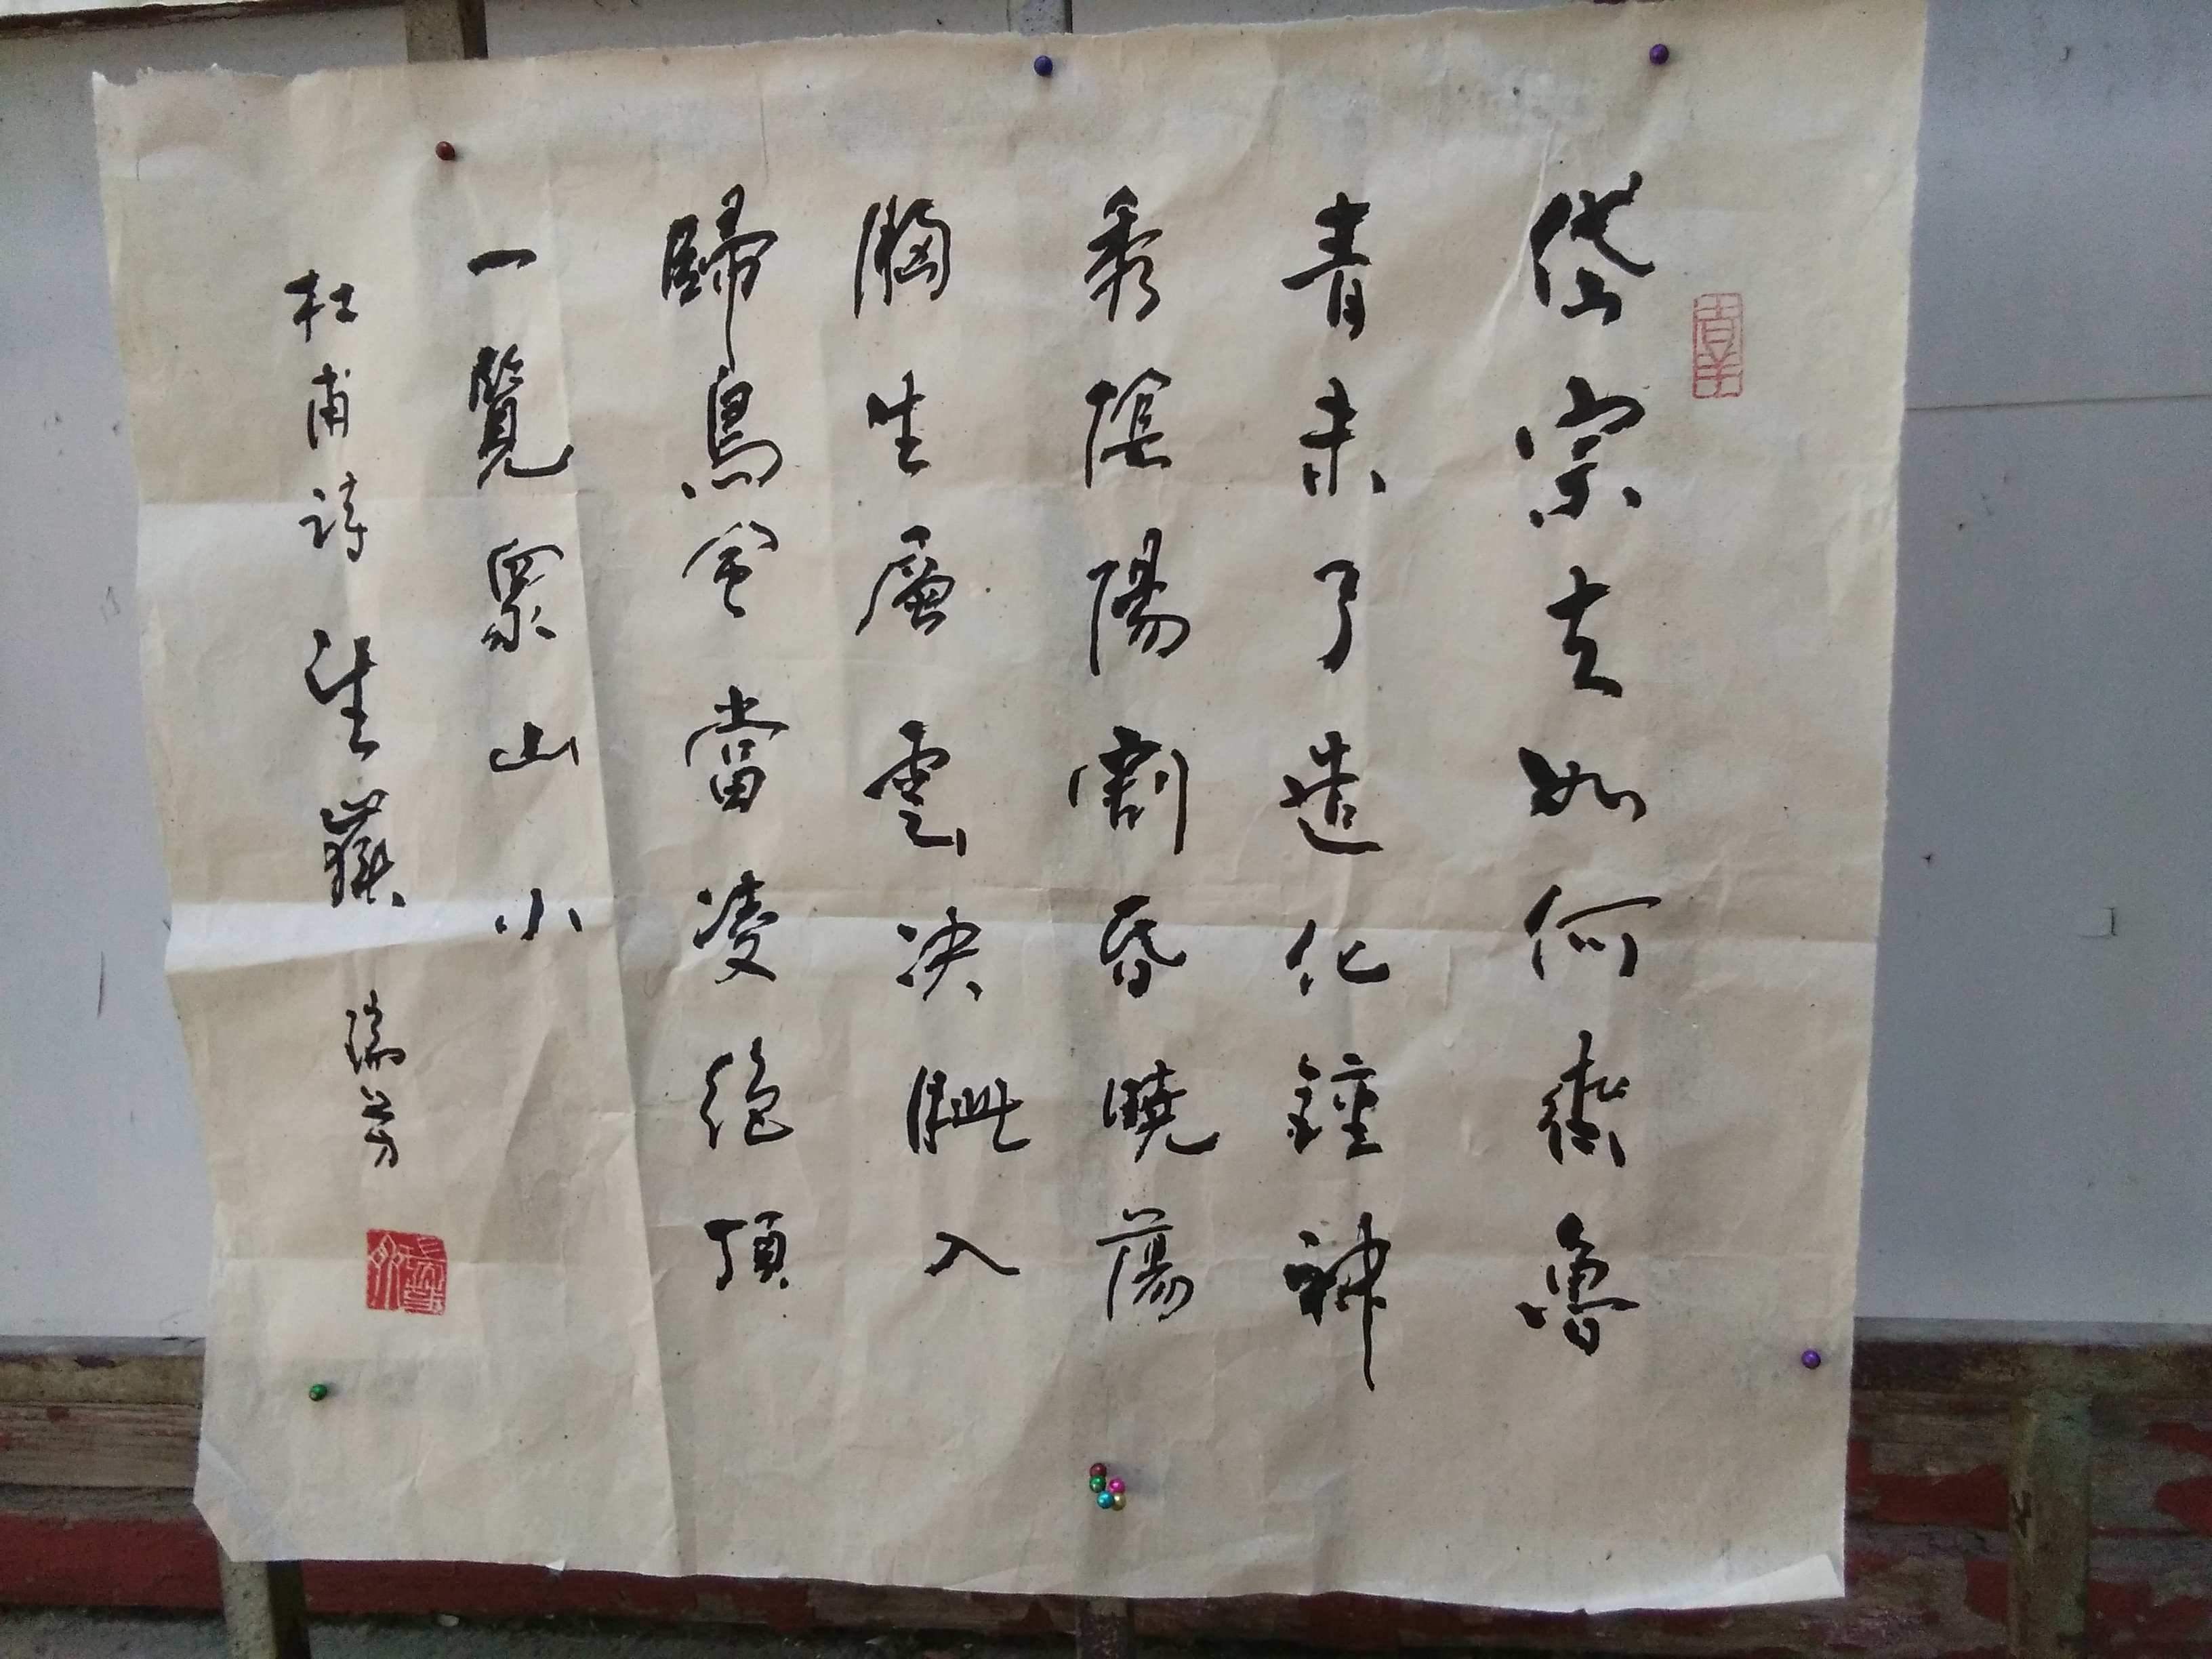 岱宗夫如何齊魯
青未了造化鍾神
秀陰陽割昏曉蕩
胸生層雲決眦入
歸鳥會當凌絕頂
一覽眾山小
杜甫詩 望嶽 瑞芳